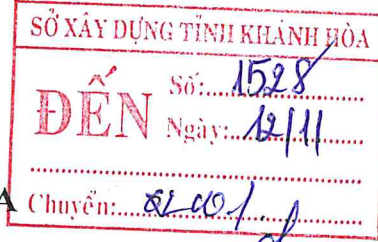 SỞ XÂY DỰNG TỈNH KHÁNH HÒA
ĐẾN
Số: 1528
Ngày: 12/11
A
Chuyển: